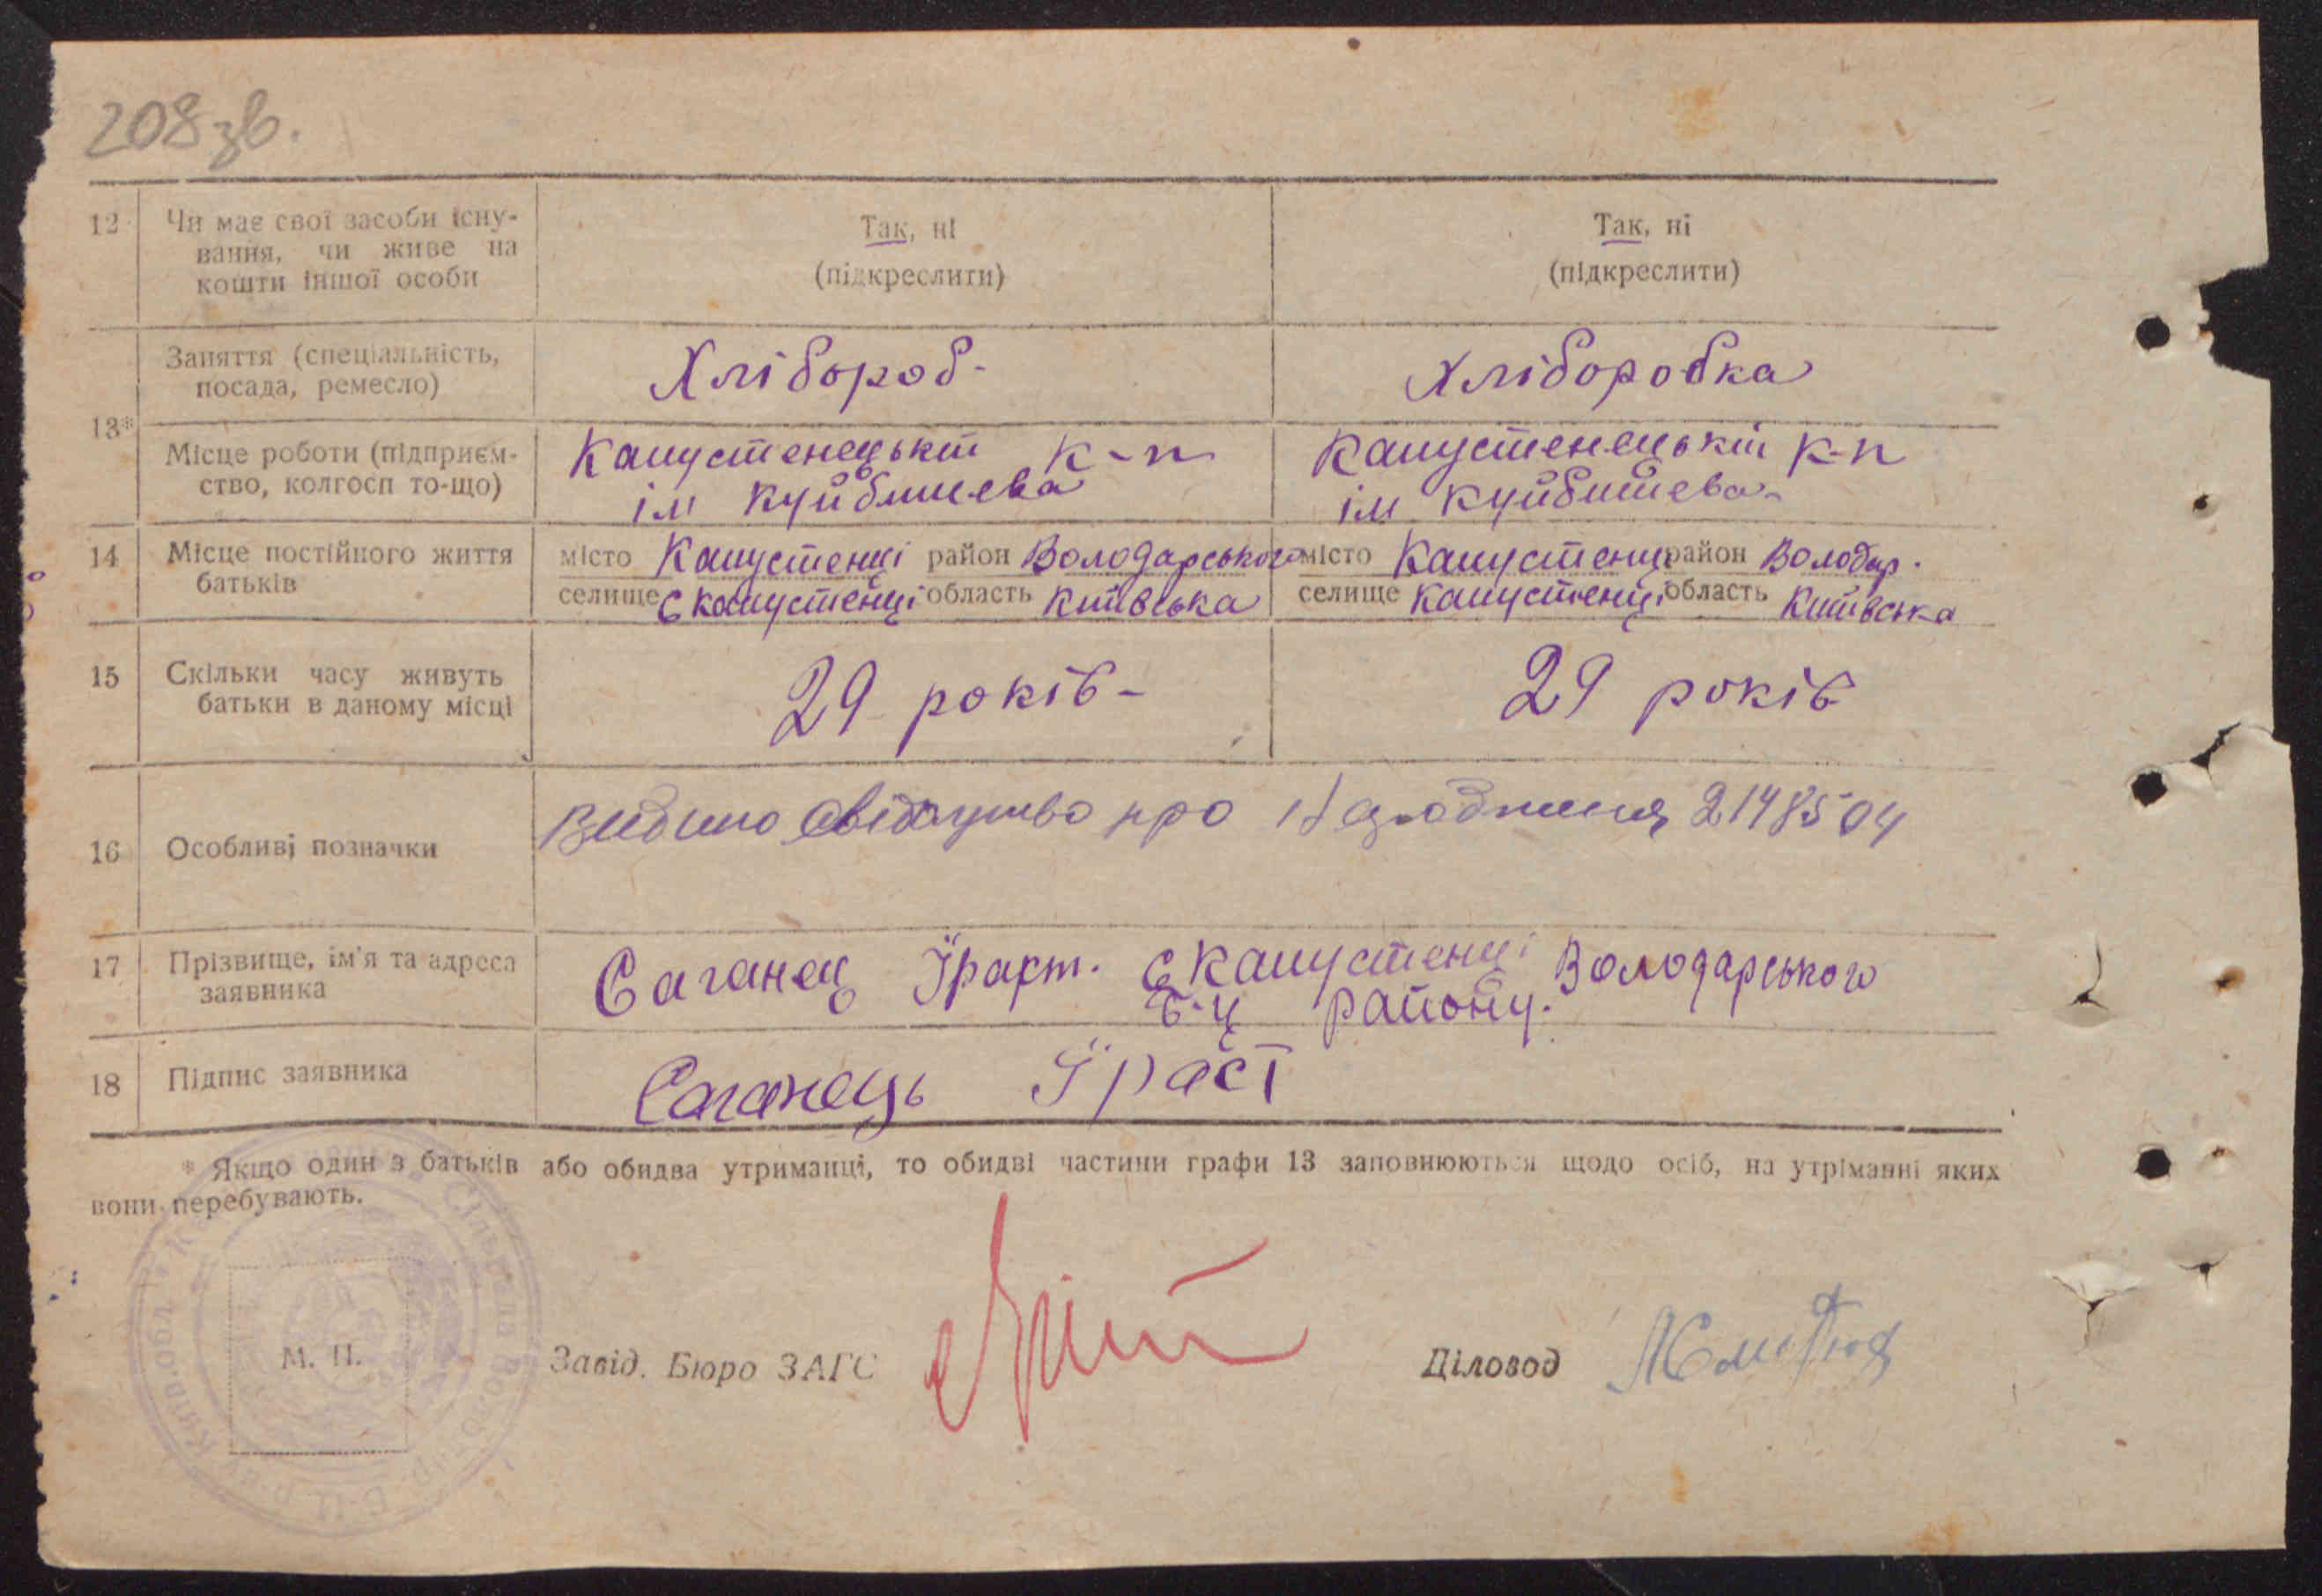 208 зв.
12 Чи має свої засоби існу-
вання, чи живе на
кошти іншої особи
Так, ні
(підкреслити)
Так, ні
(підкреслити)
13*
Заняття (спеціальність,
посада, ремесло)
Хлібороб-
Хліборобка
Місце роботи (підприєм-
ство, колгосп то-що)
Капустенецький к-п
ім Куйбишева
Капустенецький к-п
ім Куйбишева-
14 Місце постійного життя
батьків
місто Капустенці район Володарського
селище с Капустенці область Київська
місто Капустенці район Володар.
селище Капустенці область Київська
15 Скільки часу живуть
батьки в даному місці
29 років-
29 років
16 Особливі позначки
Видано свідоцтво про 2148504
17 Прізвище, ім'я та адреса
заявника
Саганец с Капустенці Володарського
Б-Ц району.
18 Підпис заявника
Саганець Їраст
* Якщо один з батьків або обидва утриманці, то обидві частини графи 13 заповнюються щодо осіб, на утріманні яких
вони перебувають.
М. П.
Завід. Бюро ЗАГС
Діловод